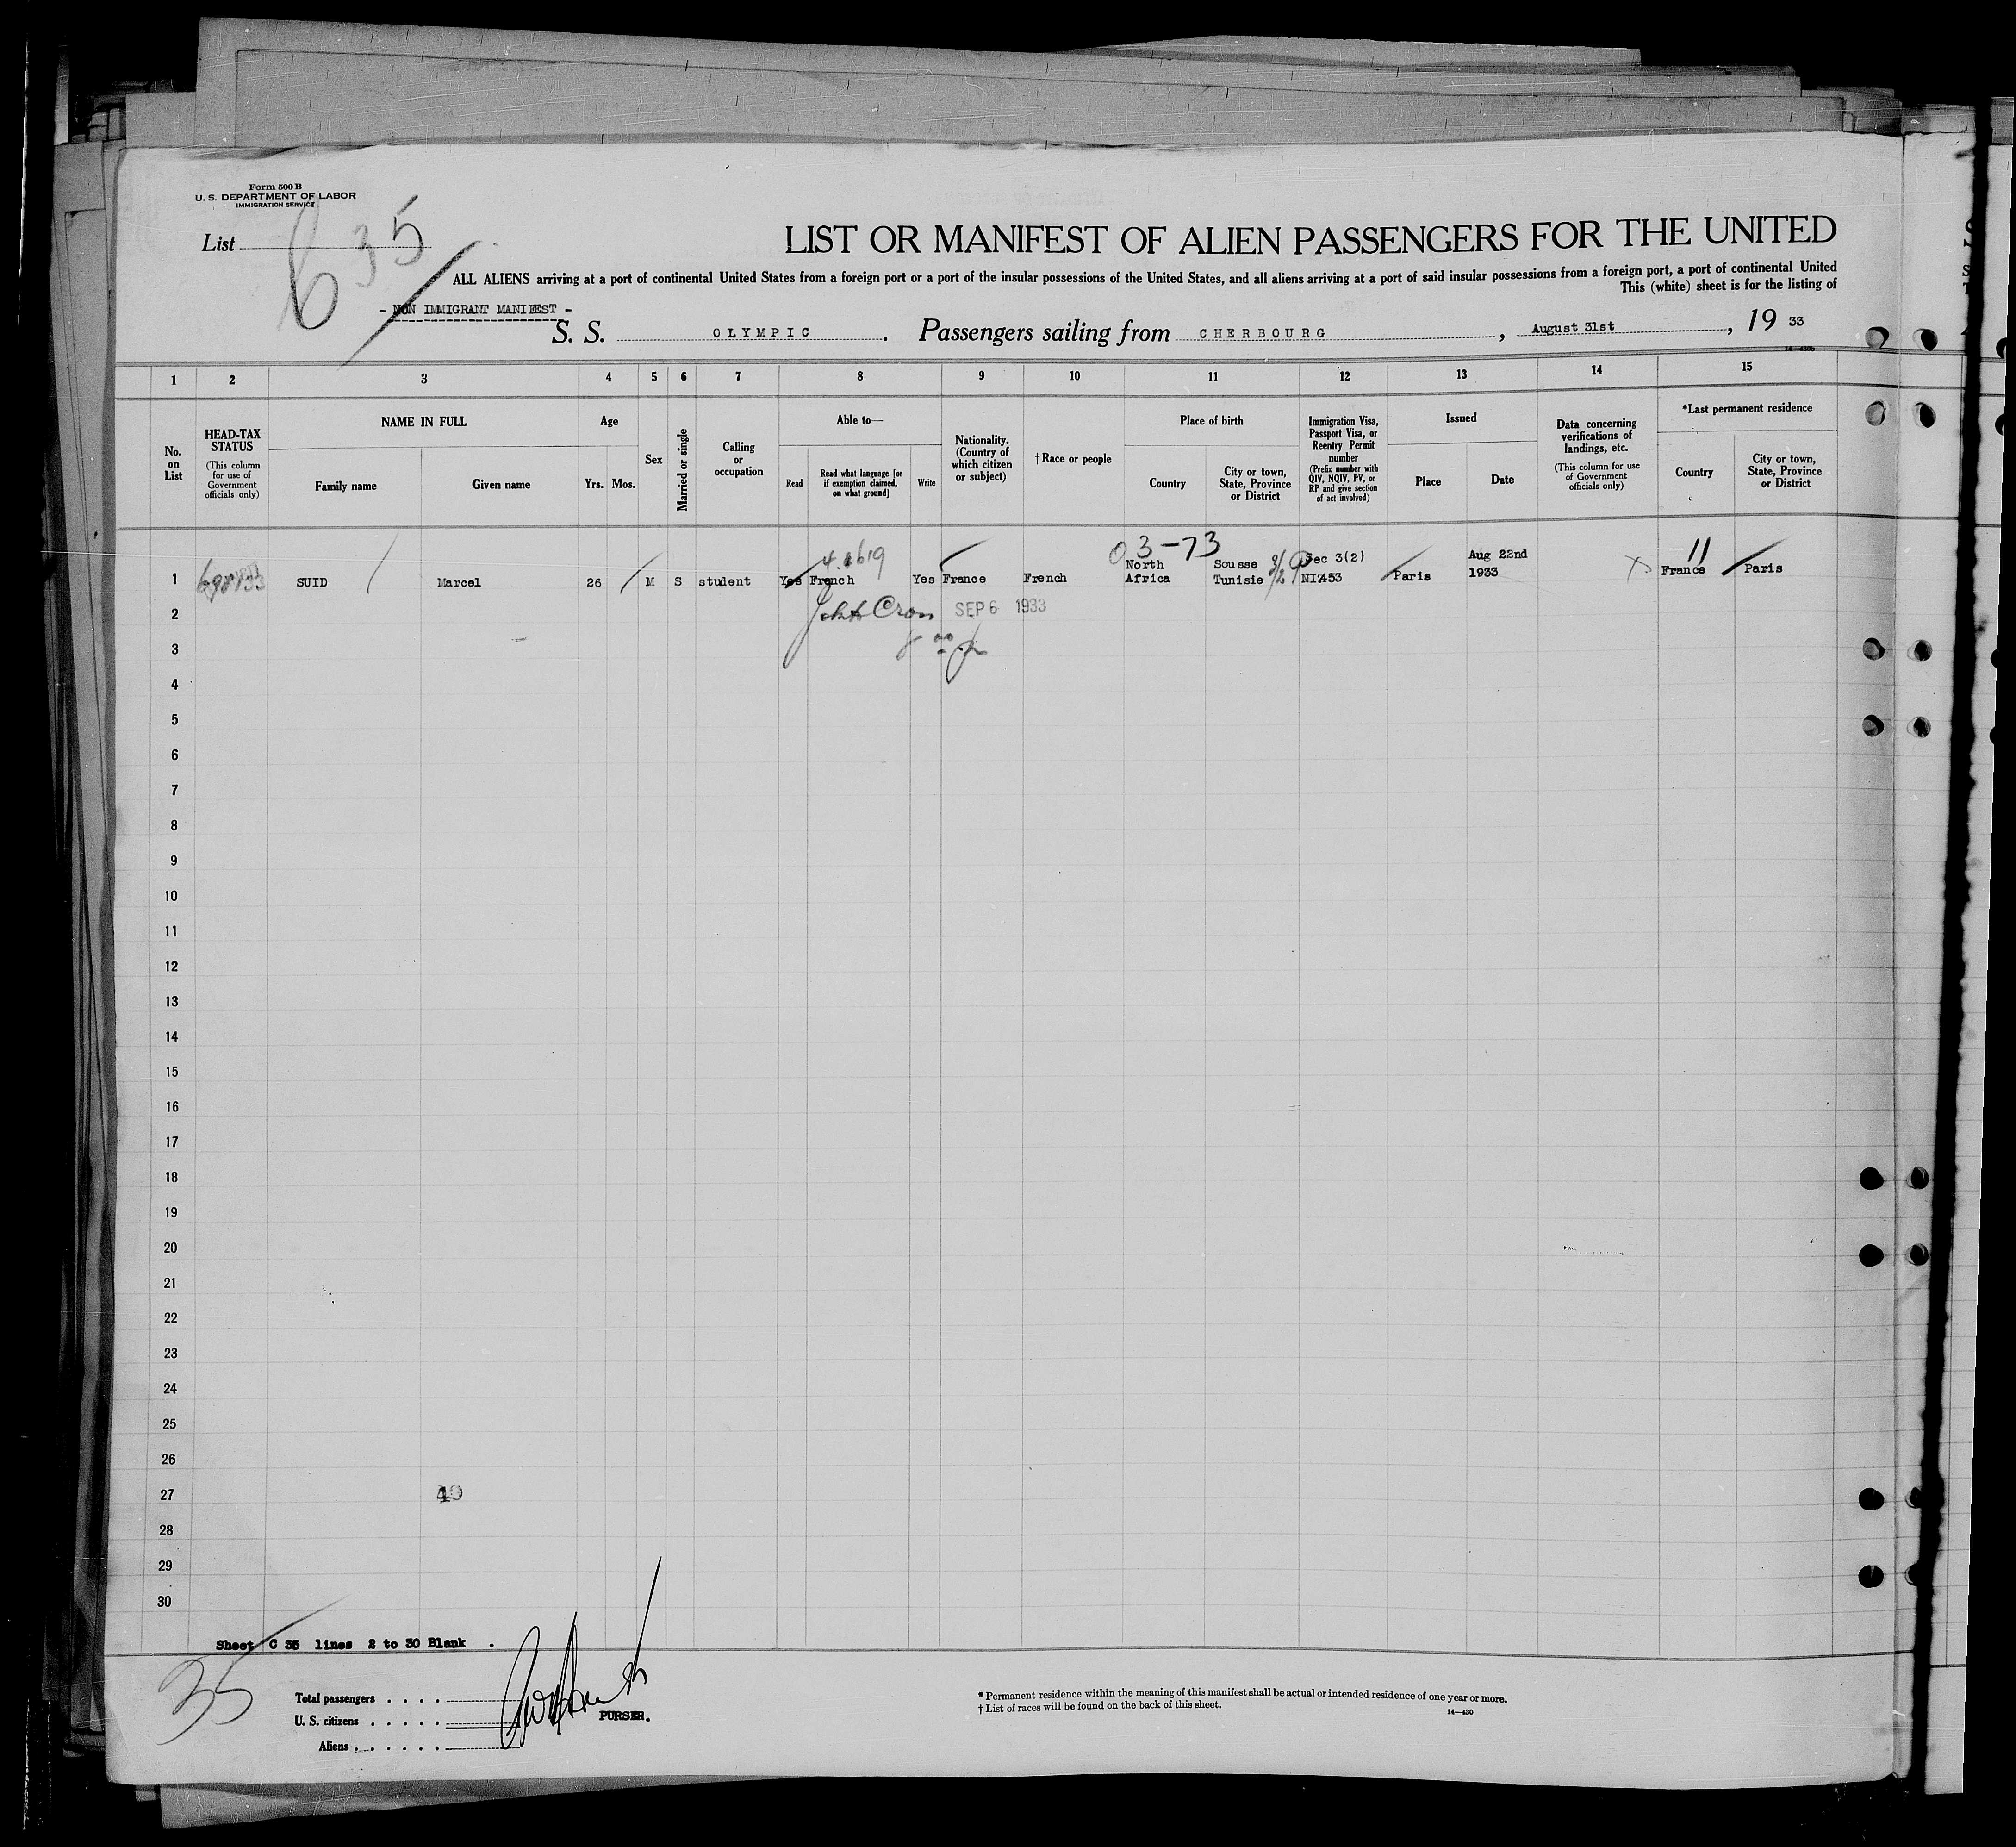 Form 500 B
U. S. DEPARTMENT OF LABOR
IMMIGRATION SERVICE
List 635
LIST OR MANIFEST OF ALIEN PASSENGERS FOR THE UNITED
ALL ALIENS arriving at a port of continental United States from a foreign port or a port of the insular possessions of the United States, and all aliens arriving at a port of said insular possessions from a foreign port, a port of continental United
This (white) sheet is for the listing of
- NON IMMIGRANT MANIFEST -
S. S. OLYMPIC. Passengers sailing from CHERBOURG, August 31st, 19 33
1 2 3 4 5 6 7 8 9 10 11 12 13 14 15
No. on List
HEAD-TAX STATUS (This column for use of Government officials only)
NAME IN FULL
Family name
Given name
Age
Yrs. Mos.
Sex
Married or single
Calling or occupation
Able to—
Read
Read what language [or if exemption claimed, on what ground]
Write
Nationality. (Country of which citizen or subject)
† Race or people
Place of birth
Country
City or town, State, Province or District
Immigration Visa, Passport Visa, or Reentry Permit number (Prefix number with QIV, NQIV, PV, or RP and give section of act involved)
Issued
Place
Date
Data concerning verifications of landings, etc. (This column for use of Government officials only)
*Last permanent residence
Country
City or town, State, Province or District
03-73
11
1 SUID Marcel 26 M S student Yes French Yes France French North Africa Sousse Tunisie Sec 3(2) Paris Aug 22nd 1933 France Paris
2 SEP 6 1933
3
4
5
6
7
8
9
10
11
12
13
14
15
16
17
18
19
20
21
22
23
24
25
26
27 40
28
29
30
Sheet C 35 lines 2 to 30 Blank .
35
Total passengers . . . .
U. S. citizens . . . . .
Aliens . . . . . .
PURSER.
* Permanent residence within the meaning of this manifest shall be actual or intended residence of one year or more.
† List of races will be found on the back of this sheet.
14—430